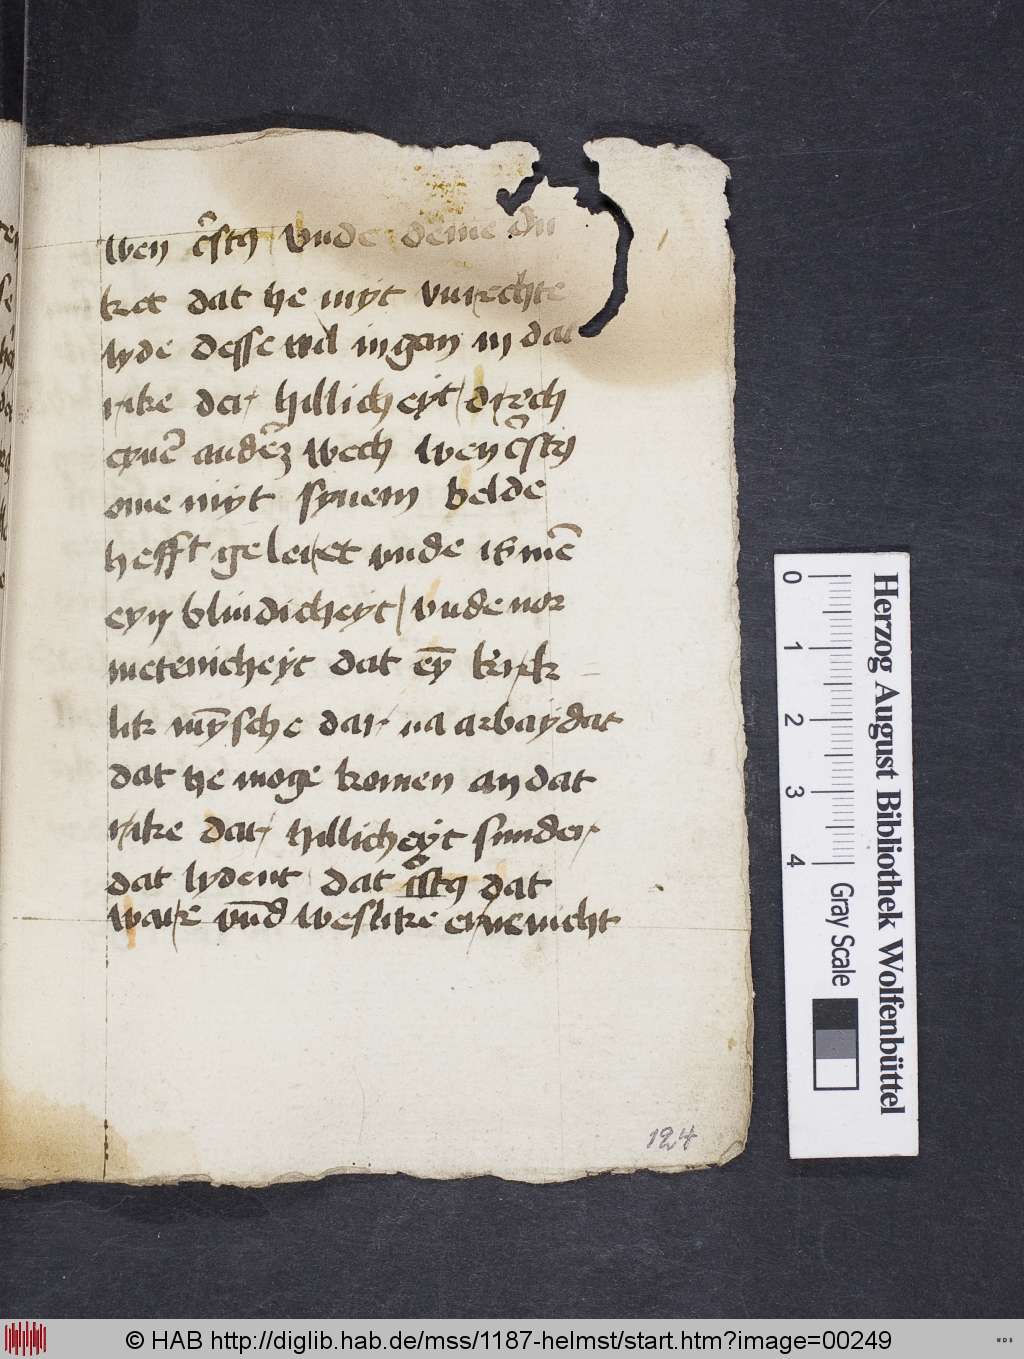 wen c̄stꝰ vnde deme du
ket dat he myt vnrechte
lyde desse wel ingan in dat
rike der hillicheyt drech
eynē andeꝛ̄ wech wen c̄stꝰ
ome myt synem belde
hefft geleret vnde is mē
eyn blindicheyt vnde vor
metenicheyt dat ey̅ krӡk
lik my̅sche dar na arbaydat
dat he moge komen an dat
rike dar hillicheyt sunder
dat lydent dat c̄stꝰ dat
ware vn̅d weslike
124
Herzog August Bibliothek Wolfenbüttel
0 1 2 3 4
Gray Scale
© HAB http://diglib.hab.de/mss/1187-helmst/start.htm?image=00249